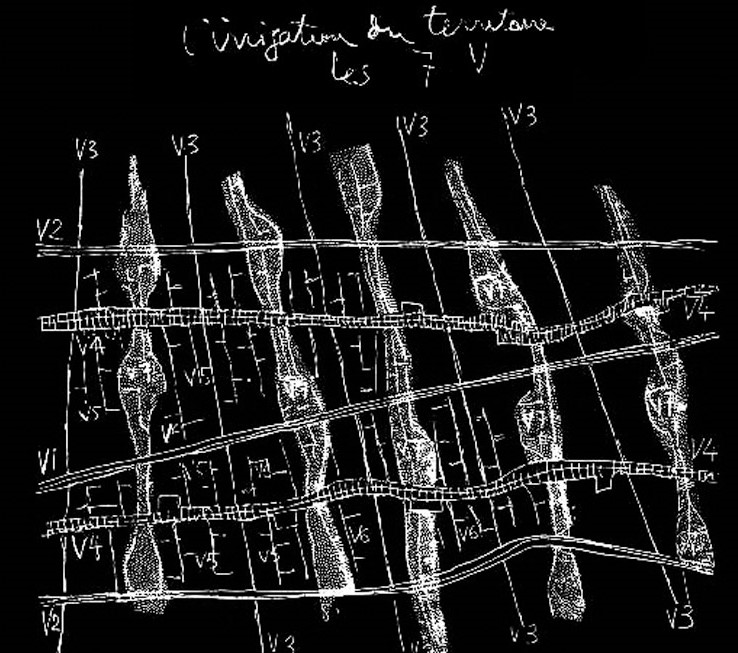 l'irrigation du territoire
les 7 V
V3
V3
V3
V3
V3
V2
V7
V4
V4
V7
V5
V7
V5
V7
V7
V1
V4
V5
V4
V6
V6
V5
V5
V2
V3
V3
V3